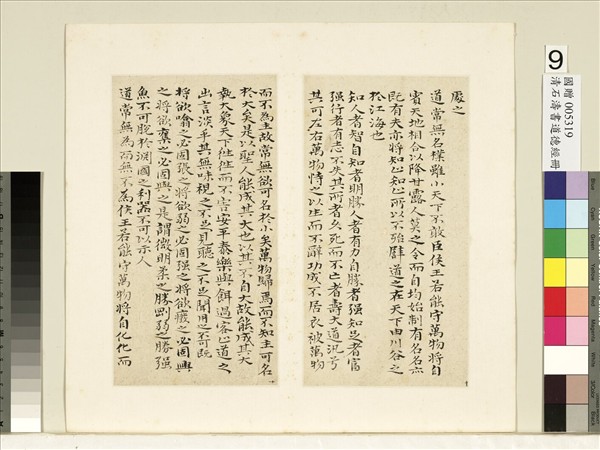 處之
道常無名樸雖小天下不敢臣侯王若能守萬物將自
賓天地相合以降甘露人莫之令而自均始制有名名亦
既有夫亦將知止知止所以不殆譬道之在天下由川谷之
於江海也
知人者智自知者明勝人者有力自勝者強知足者富
強行者有志不失其所者久死而不亡者壽大道汎兮
其可左右萬物恃之以生而不辭功成不居衣被萬物
而不為主故常無欲可名於小矣萬物歸焉而不知主可名
於大矣是以聖人能成其大也以其不自大故能成其大
執大象天下往往而不害安平泰樂與餌過客止道之
出言淡乎其無味視之不足見聽之不足聞用之不可既
將欲噏之必固張之將欲弱之必固强之將欲廢之必固興
之將欲奪之必固與之是謂微明柔之勝剛弱之勝强
魚不可脫於淵國之利器不可以示人
道常無為而無不為侯王若能守萬物將自化化而
9
國贈 005319
清石濤書道德經冊
Blue
Cyan
Green
Yellow
Red
Magenta
White
3/Color
Black